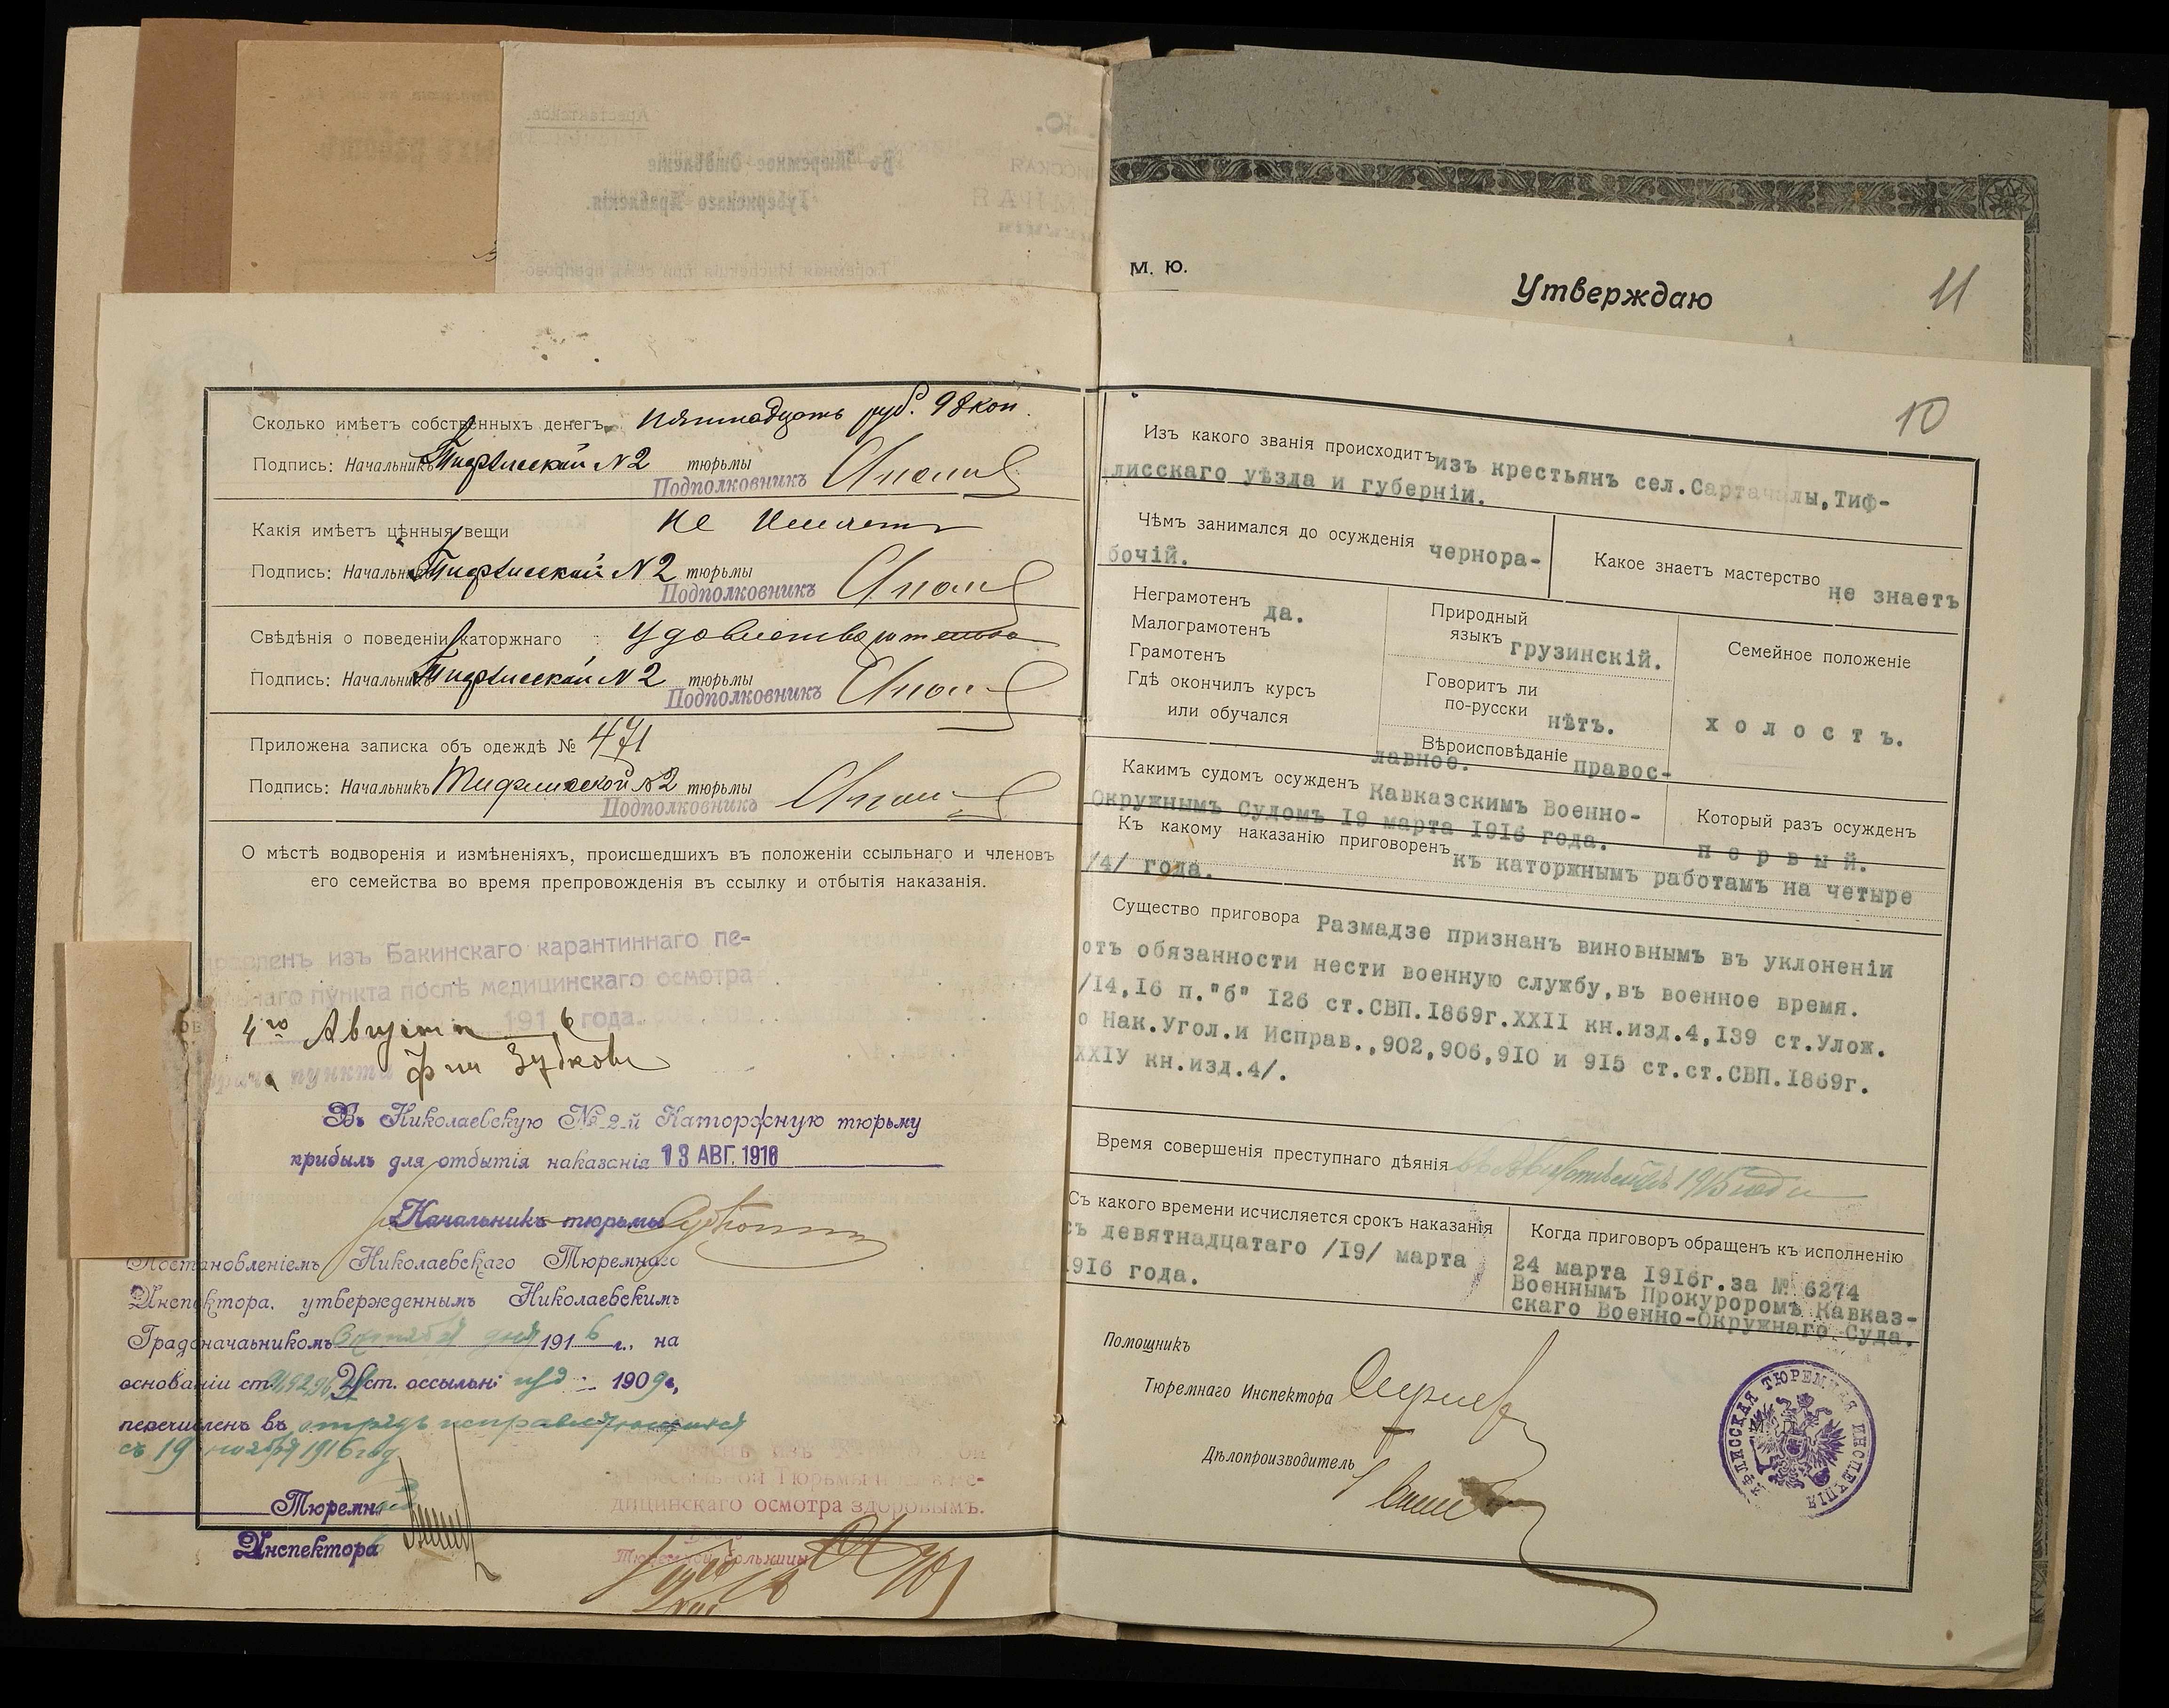 Сколько имѣетъ собственныхъ денегъ пятнадцать руб. 98 коп.
Подпись: Начальникъ Тифлисской N2 тюрьмы
Подполковникъ
Какія имѣетъ цѣнныя вещи не имѣетъ
Подпись: Начальникъ Тифлисской N2 тюрьмы
Подполковникъ
Свѣдѣнія о поведеніи каторжнаго : удовлетворительно
Подпись: Начальникъ Тифлисской N2 тюрьмы
Подполковникъ
Приложена записка объ одеждѣ № 471
Подпись: Начальникъ Тифлисской №2 тюрьмы
Подполковникъ
О мѣстѣ водворенія и измѣненіяхъ, происшедшихъ въ положеніи ссыльнаго и членовъ
его семейства во время препровожденія въ ссылку и отбытія наказанія.
изъ Бакинскаго карантиннаго пе-
пункта послѣ медицинскаго осмотра
4го Августа 1916 года.
пункта
Въ Николаевскую № 2-й Каторжную тюрьму
прибылъ для отбытія наказанія 13 АВГ. 1916
Начальникъ тюрьмы
Постановленіемъ Николаевскаго Тюремнаго
Инспектора, утвержденнымъ Николаевскимъ
Градоначаьникомъ 1916 г., на
основаніи ст. Уст. оссыльн: изд. 1909 г.,
перечисленъ въ отрядъ исправляющихся
съ 19 ноября 1916 год
Тюремн
Инспектора
Тюрьмы
дицинскаго осмотра здоровымъ.
Тюремной больницы
М. Ю.
Утверждаю
11
10
Изъ какого званія происходитъ изъ крестьянъ сел.Сартачалы,Тиф-
лисскаго уѣзда и губерніи.
Чѣмъ занимался до осужденія чернора-
бочій.
Какое знаетъ мастерство не знаетъ
Неграмотенъ да.
Малограмотенъ
Грамотенъ
Гдѣ окончилъ курсъ
или обучался
Природный
языкъ грузинскій.
Говоритъ ли
по-русски нѣтъ.
Вѣроисповѣданіе правос-
лавное.
Семейное положеніе
холостъ.
Какимъ судомъ осужденъ Кавказскимъ Военно-
Окружнымъ Судомъ I9 марта I9I6 года.
Который разъ осужденъ
первый.
Къ какому наказанію приговоренъ къ каторжнымъ работамъ на четыре
/4/ года.
Существо приговора Размадзе признанъ виновнымъ въ уклоненіи
отъ обязанности нести военную службу,въ военное время.
/I4,I6 п."б" I26 ст.СВП.I869г.XXII кн.изд.4,I39 ст.Улож.
о Нак.Угол.и Исправ.,902,906,9I0 и 9I5 ст.ст.СВП.I869г.
XXIУ кн.изд.4/.
Время совершенія преступнаго дѣянія 1915 года
Съ какого времени исчисляется срокъ наказанія
съ девятнадцатаго /I9/ марта
I9I6 года.
Когда приговоръ обращенъ къ исполненію
24 марта I9I6г.за № 6274
Военнымъ Прокуроромъ Кавказ-
скаго Военно-Окружнаго Суда.
Помощникъ
Тюремнаго Инспектора
Дѣлопроизводитель
ТИФЛИССКАЯ ТЮРЕМНАЯ ИНСПЕКЦІЯ